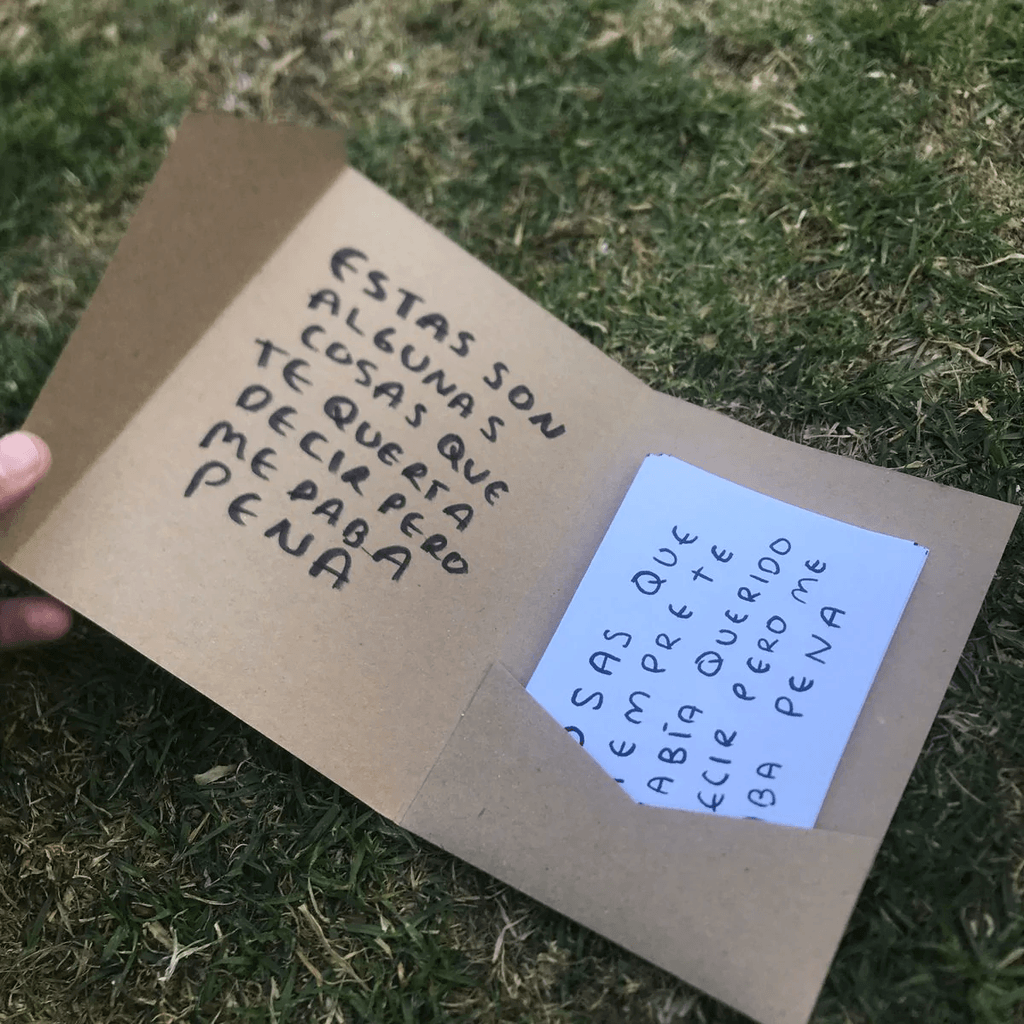 ESTAS SON
ALGUNAS
COSAS QUE
TE QUERIA
DECIR PERO
ME DABA
PENA
OSAS QUE
IEMPRE TE
ABÍA QUERIDO
ECIR PERO ME
BA PENA